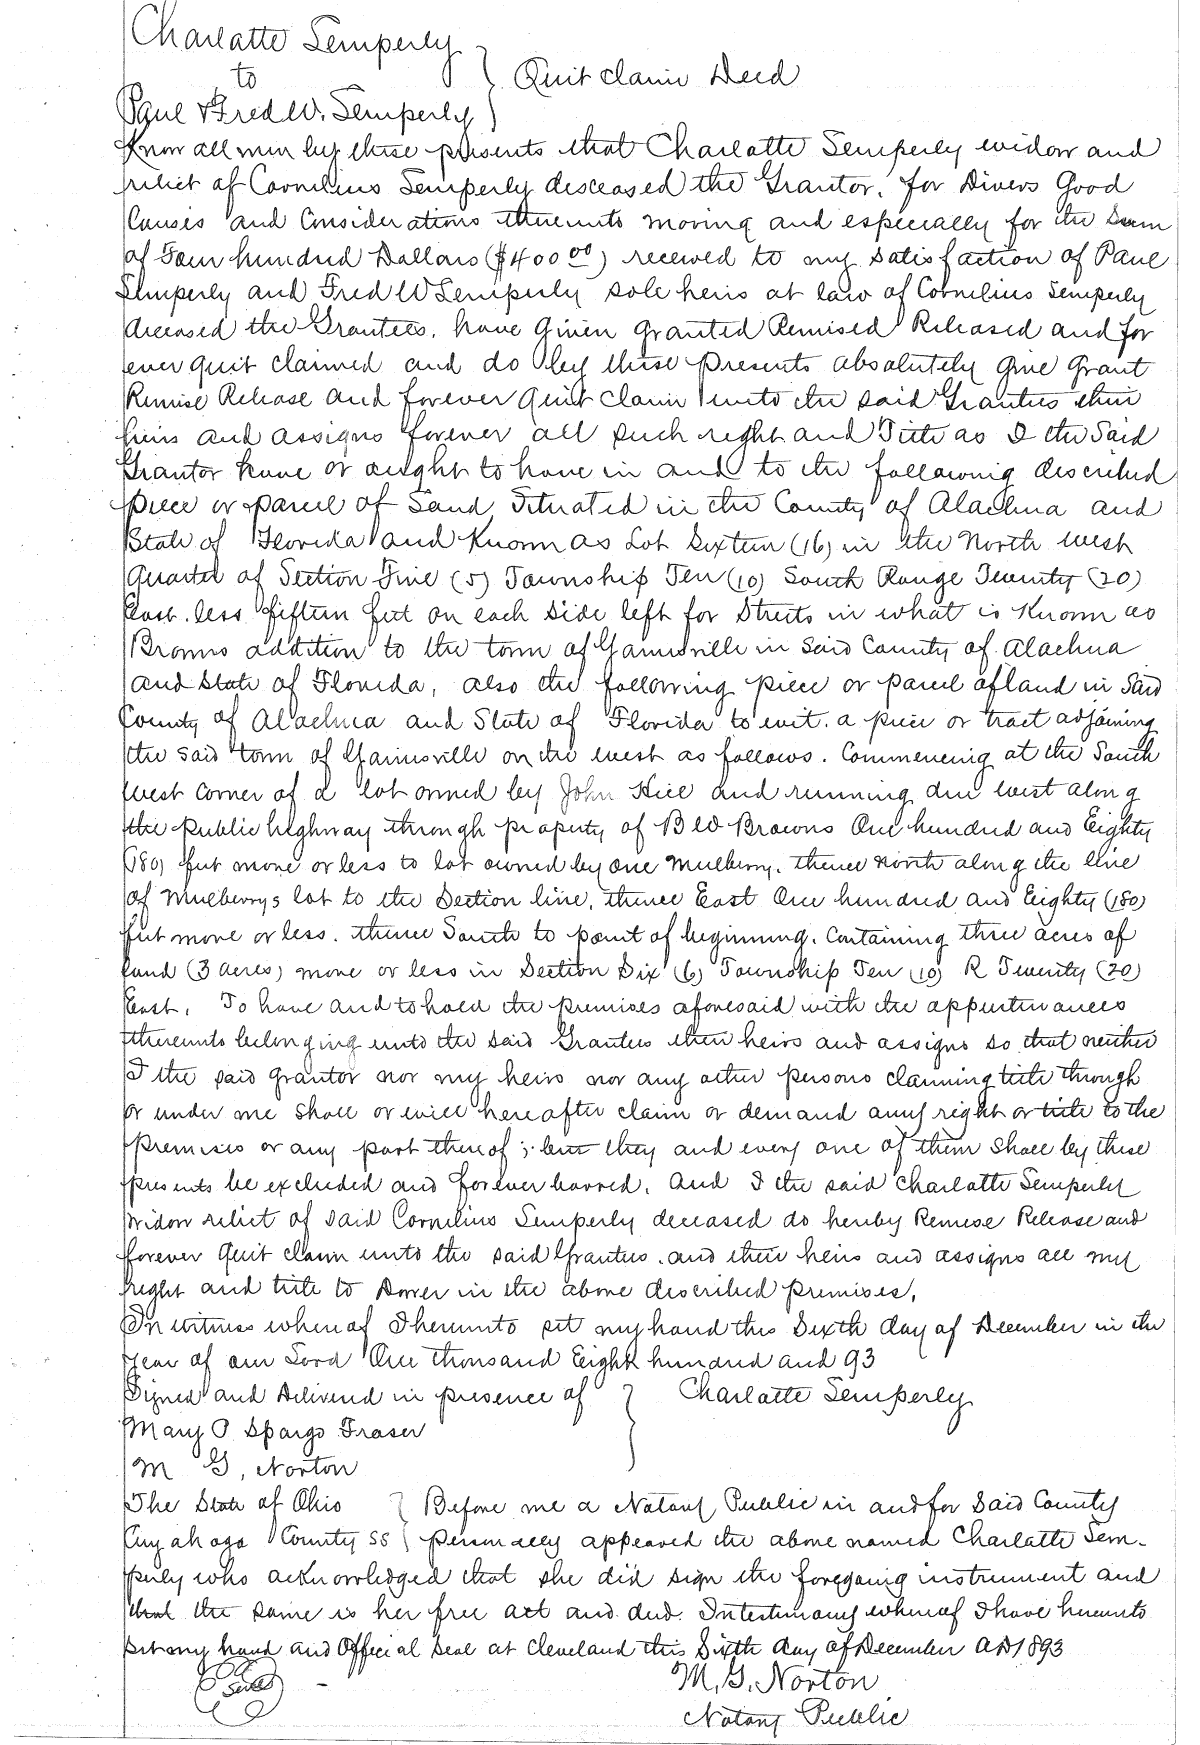 Charlatte Semperly
to
Quit claim Deed
Paul & Fred W. Semperly
Know all men by these presents that Charlatte Semperly widow and
relict of Cornilius Semperly desceased the Grantor, for Divers Good
Causes and Considerations thereunto moving and especially for the Sum
of Four hundred Dollars ($400 00) received to my satisfaction of Paul
Semperly and Fred W Semperly sole heirs at law of Cornelius Semperly
deceased the Grantees, have Given granted Remised Released and for
ever quit claimed and do by these presents absolutely give grant
Remise Release and forever quit claim unto the said Grantees their
heirs and assigns forever all such right and Title as I the Said
Grantor have or ought to have in and to the following described
piece or parcel of Land Situated in the County of Alachua and
State of Florida and Known as Lot Sixteen (16) in the North west
Quarter of Section Five (5) Township Ten (10) South Range Twenty (20)
East. less fifteen feet on each Side left for Streets in what is Known as
Browns addition to the town of Gainesville in Said County of Alachua
and State of Florida, also the following piece or parcel of land in Said
County of Alachua and State of Florida to wit. a piece or tract adjoining
the said town of Gainesville on the west as follows. Commencing at the South
West Corner of a lot owned by John Hice and running due west along
the public highway through property of B W Browns One hundred and Eighty
(180) feet more or less to lot owned by one Mulberry. thence North along the line
of Mulberrys lot to the Section line, thence East One hundred and Eighty (180)
feet more or less. thence South to point of beginning. Containing three acres of
land (3 acres) more or less in Section Six (6) Township Ten (10) R Twenty (20)
East. To have and to hold the premises aforesaid with the appurtenances
thereunto belonging unto the said Grantees their heirs and assigns so that neither
I the said grantor nor my heirs nor any other persons claiming title through
or under me shall or will hereafter claim or demand any right or title to the
premises or any part thereof; but they and every one of them shall by these
presents be excluded and forever barred. And I the said Charlatte Semperly
widow relict of said Cornelius Semperly deceased do hereby Remise Release and
forever Quit claim unto the said Grantees. and their heirs and assigns all my
right and title to Dower in the above described premises.
In witness whereof I hereunto set my hand this Sixth day of December in the
year of our Lord One thousand Eight hundred and 93
Signed and Delivered in presence of Charlatte Semperly
Mary P Spargo Fraser
M G, Norton
The State of Ohio Before me a Notary Public in and for Said County
Cuyahoga County SS personally appeared the above named Charlatte Sem-
perly who acknowledged that she did sign the foregoing instrument and
that the same is her free act and deed. In testimony whereof I have hereunto
set my hand and Official Seal at Cleveland this Sixth day of December AD 1893
Seal M. G. Norton
Notary Public